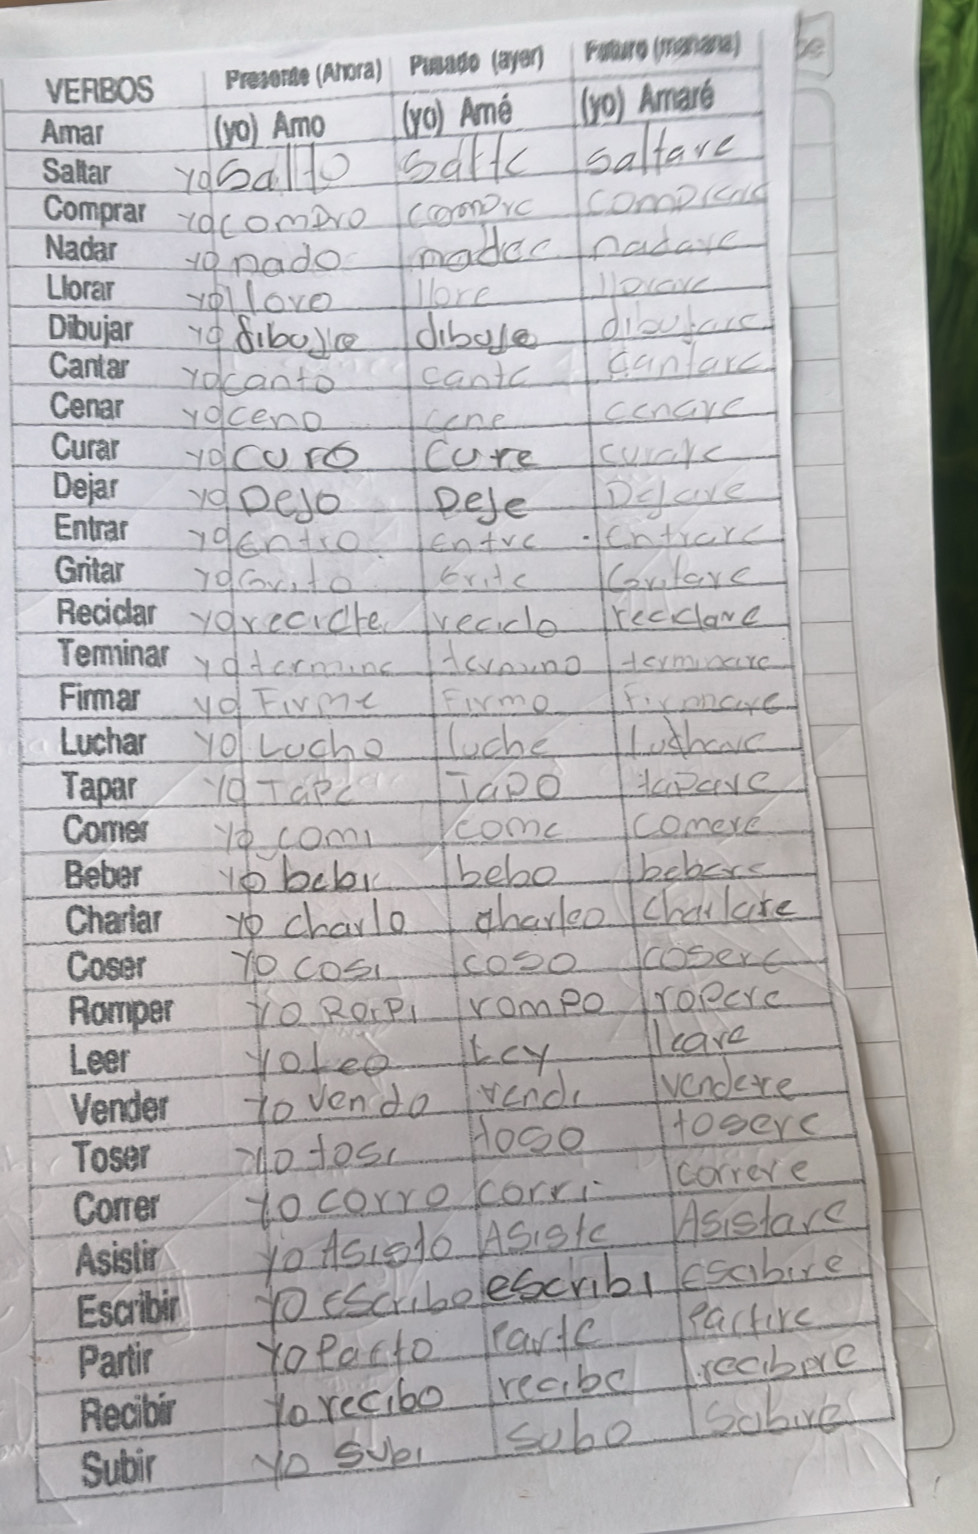 VERBOS Presente (Ahora) Pasado (ayer) Futuro (manana)
Amar (yo) Amo (yo) Amé (yo) Amaré
Saltar yo Salto Salte saltare
Comprar yo compro compre
Nadar yo nado nadare
Llorar yo lloro llore llorare
Dibujar yo dibuje dibujare
Cantar yo canto cante cantare
Cenar yo ceno cene cenare
Curar yo curo cure curare
Dejar yo DeJo DeJe DeJare
Entrar yo entro entre entrare
Gritar yo Grito Grite Gritare
Reciclar yo reciclo reciclare
Terminar yo termine termino terminare
Firmar yo Firme Firmo Firmare
Luchar yo Lucho luche luchare
Tapar yo Tape Tapo tapare
Comer yo comi come comere
Beber yo bebi bebo bebere
Charlar yo charlo charleo charlare
Coser yo cosi coso cosere
Romper yo rompo ropere
Leer yo Leo Ley leare
Vender yo vendo vendi vendere
Toser yo tosi toso tosere
Correr yo corro corri correre
Asistir yo Asisto Asiste Asistare
Escribir yo escribo escribi escibire
Partir yo Parto Parte Partire
Recibir yo recibo recibe recibere
Subir yo subi subo Subire